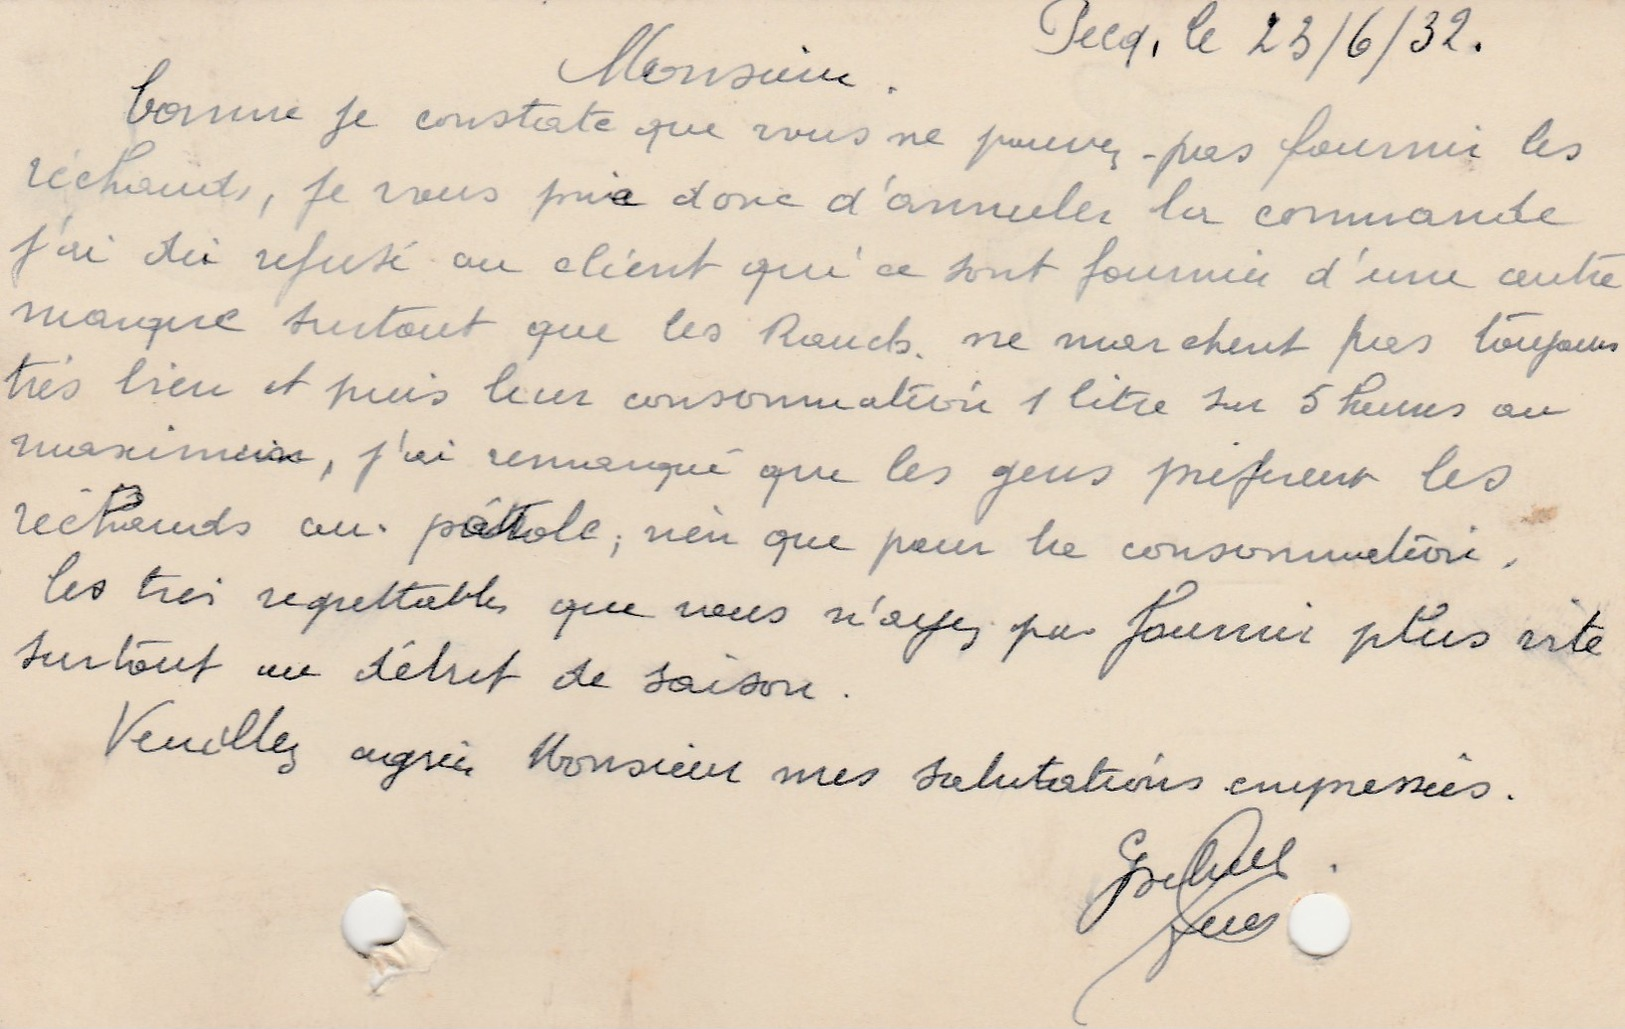 Pecq, le 23/6/32.
Monsieur.
Comme je constate que vous ne pouvez pas fournir les
réchauds, je vous prie donc d'annuler la commande
j'ai du refusé au client qui ce sont fournir d'une autre
marque surtout que les ne marchent pas toujours
très bien et puis leur consommation 1 litre sur 5 heures au
maximum, j'ai remarqué que les gens préfèrent les
réchauds au pétrole, rien que pour la consommation.
Ces très regrettable que vous n'ayez pas fournir plus vite
surtout au début de saison.
Veuillez agréer Monsieur mes salutations empressées.